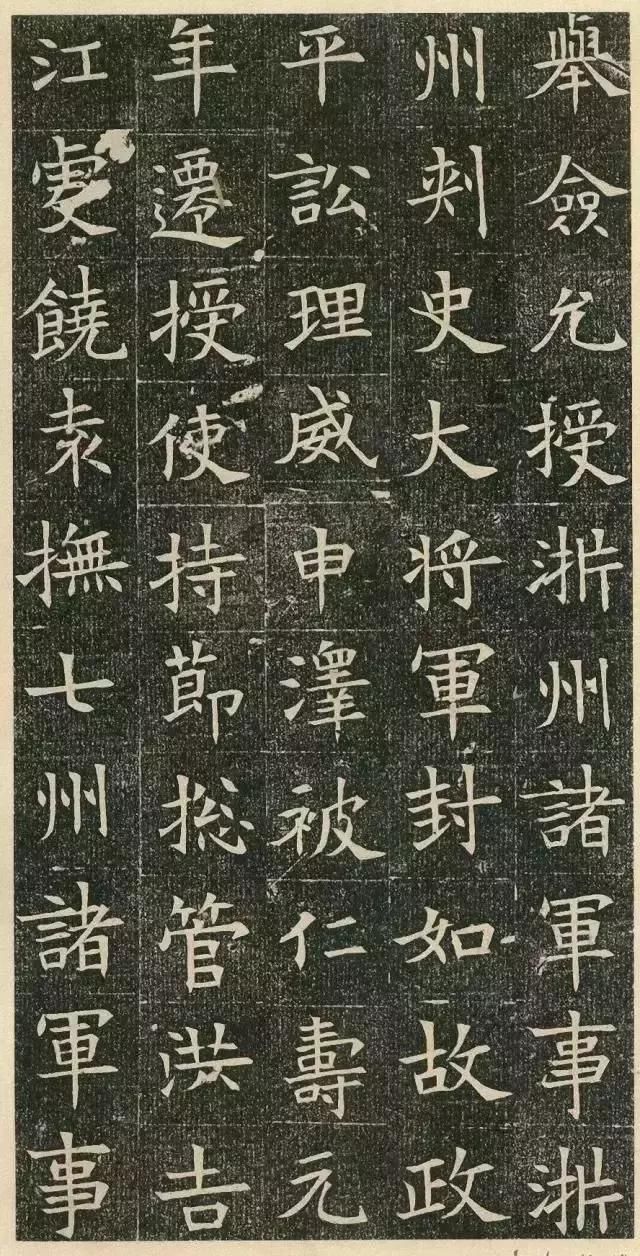 舉僉允授淅州諸軍事淅
州刾史大將軍封如故政
平訟理威申澤被仁壽元
年遷授使持節揔管洪吉
江虔饒袁撫七州諸軍事